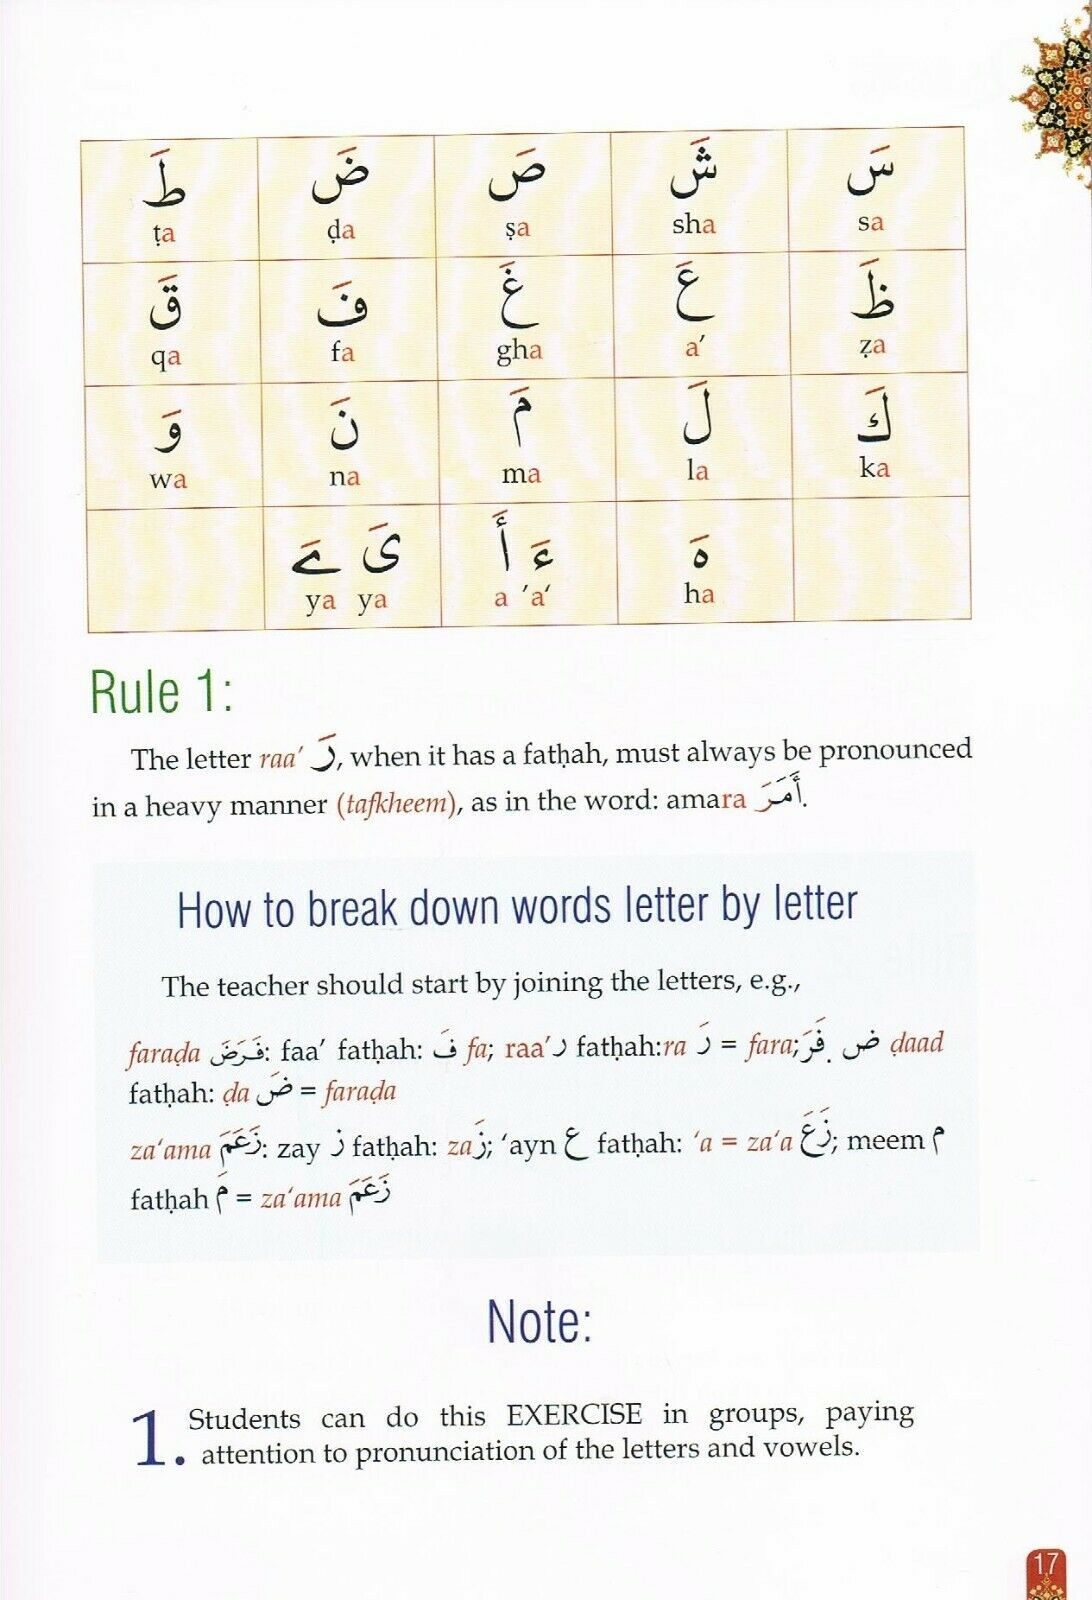 سَ شَ صَ ضَ طَ
sa sha ṣa ḍa ṭa
ظَ عَ غَ فَ قَ
ẓa a’ gha fa qa
كَ لَ مَ نَ وَ
ka la ma na wa
هَ ءَ أَ ىَ ےَ
ha a ’a‘ ya ya
Rule 1:
The letter raa’ رَ, when it has a fatḥah, must always be pronounced
in a heavy manner (tafkheem), as in the word: amara أَمَرَ.
How to break down words letter by letter
The teacher should start by joining the letters, e.g.,
faraḍa فَرَضَ: faa’ fatḥah: فَ fa; raa’ ر fatḥah:ra رَ = fara;فَرَ. ض ḍaad
fatḥah: ḍa ضَ = faraḍa
za‘ama زَعَمَ: zay ز fatḥah: za زَ; ‘ayn ع fatḥah: ‘a = za‘a زَعَ; meem م
fatḥah مَ = za‘ama زَعَمَ
Note:
1. Students can do this EXERCISE in groups, paying
attention to pronunciation of the letters and vowels.
17